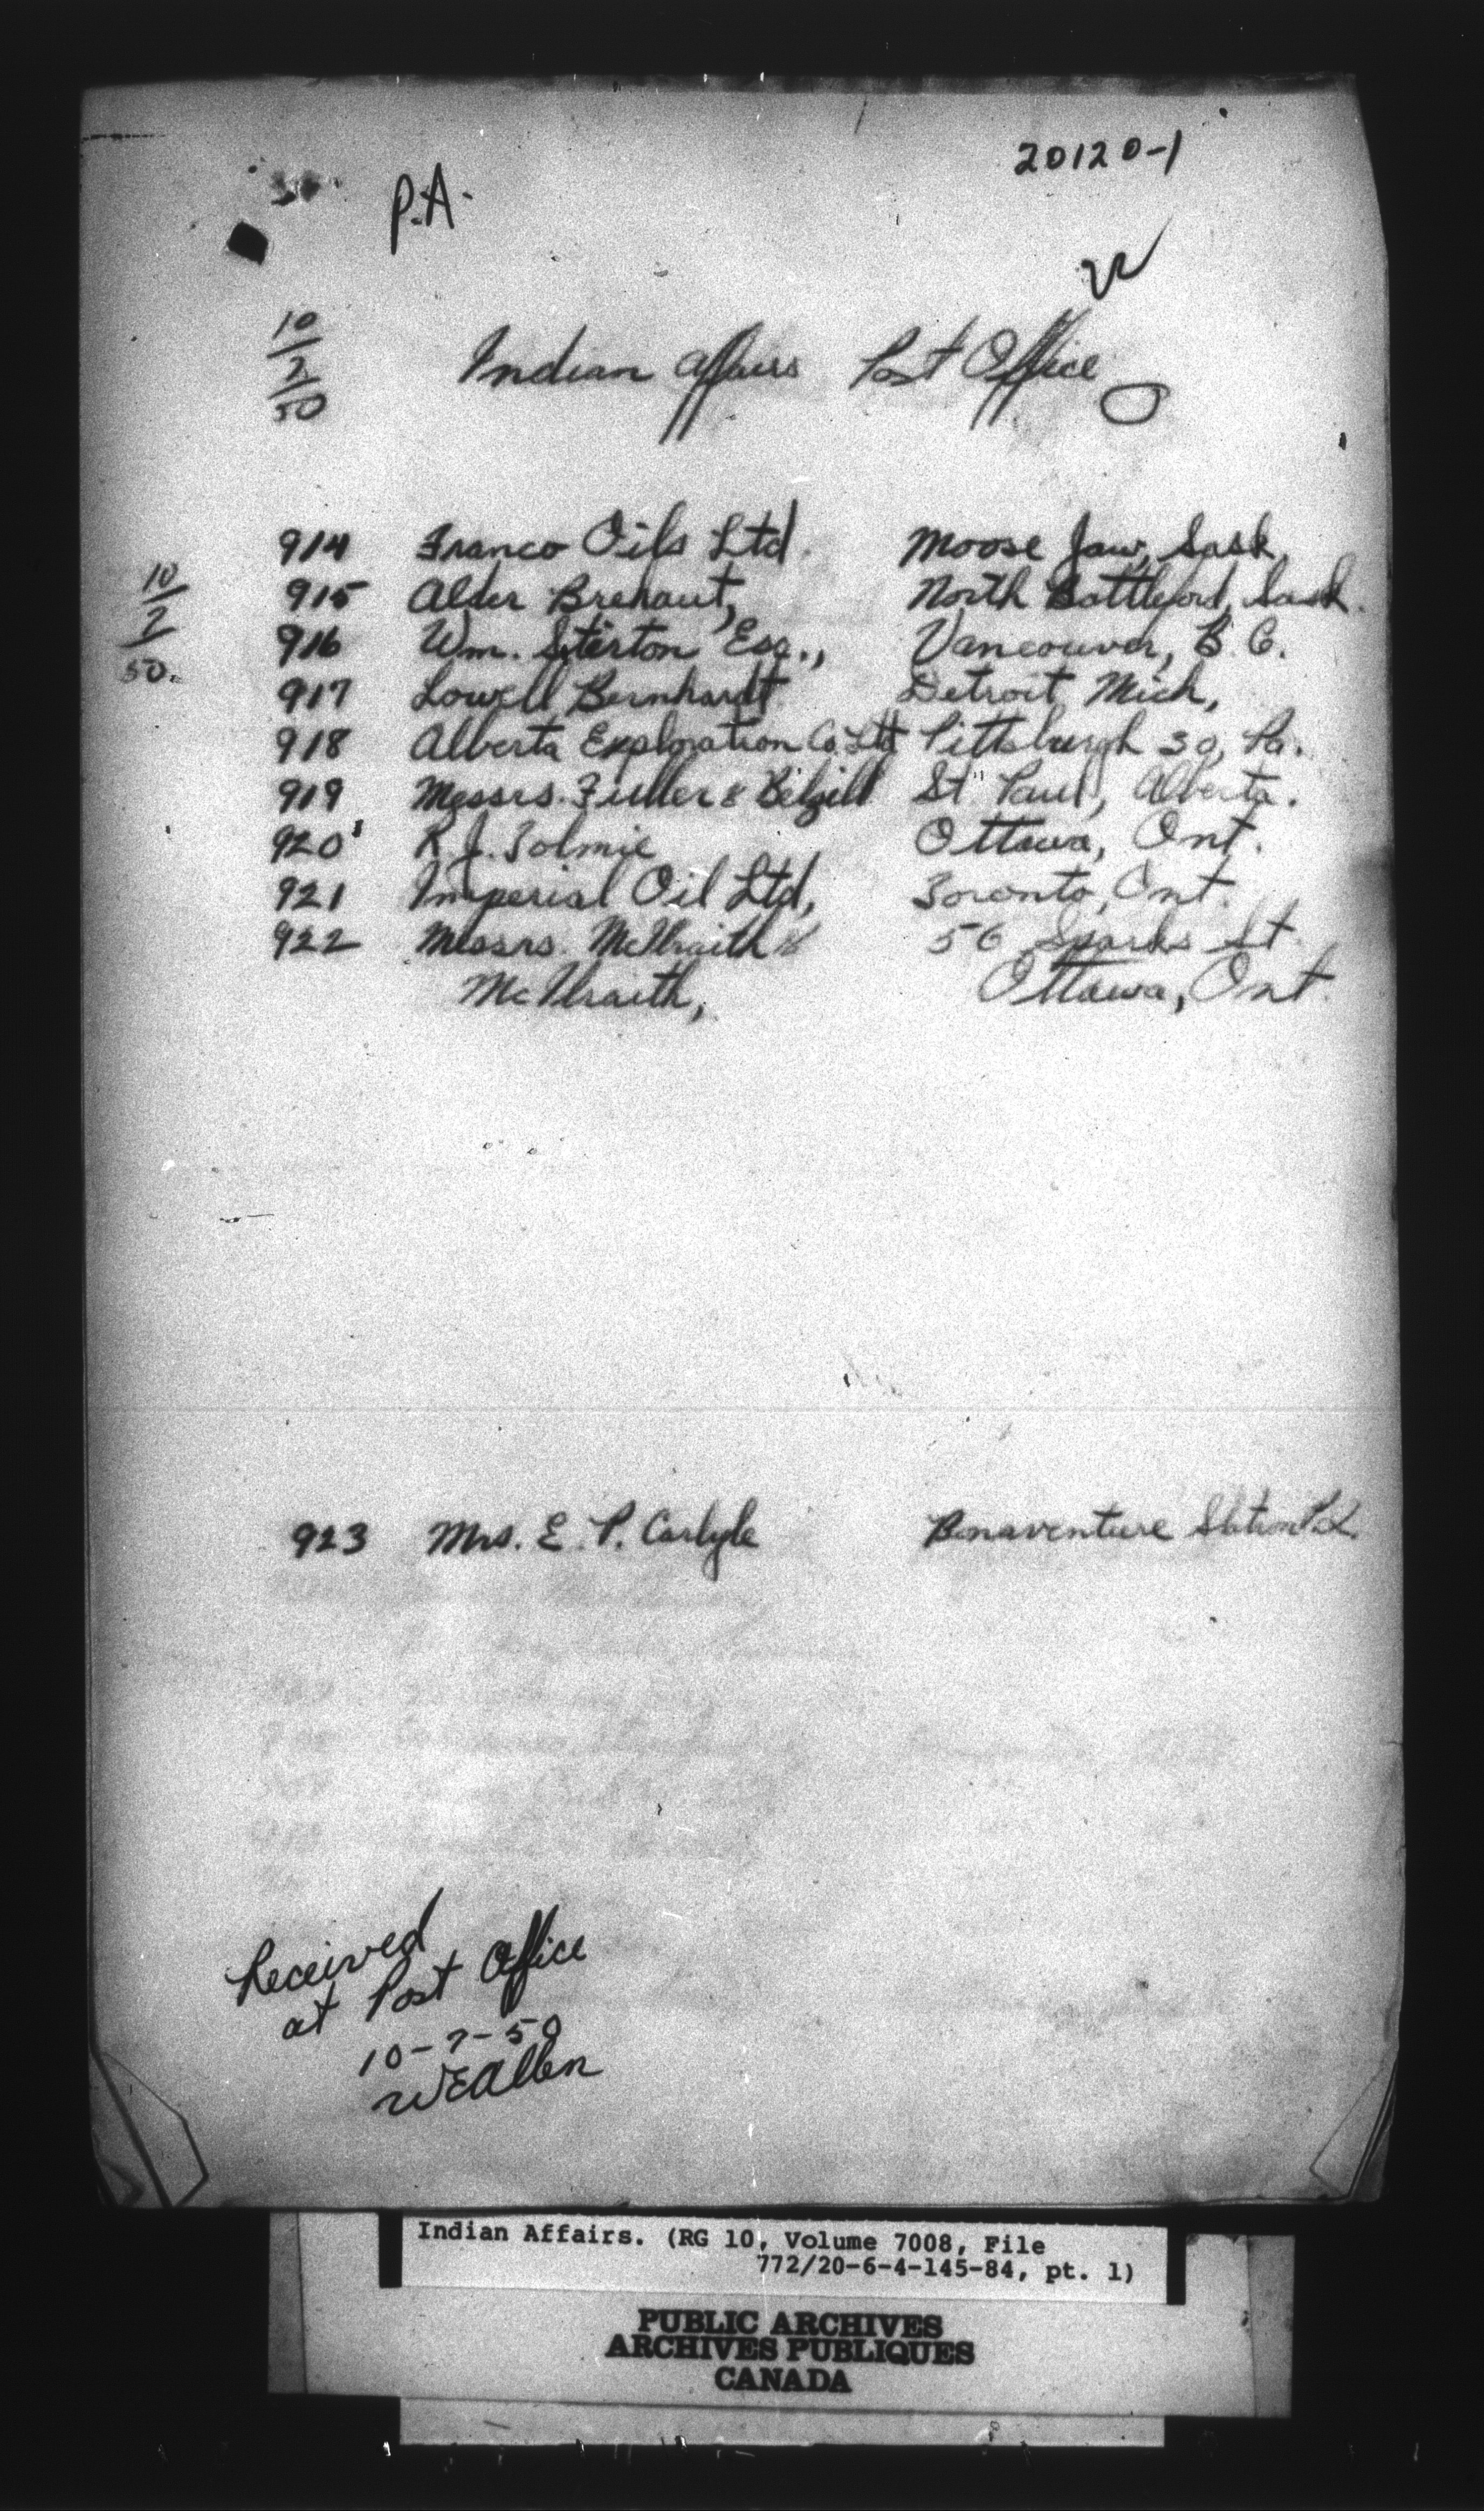 20120-1
P.A.
10
2
50
Indian Affairs Post Office
914 Franco Oils Ltd. Moose Jaw, Sask.
10
2
50.
915 Alder Brehaut, North Battleford, Sask.
916 Wm. Stirton Esq., Vancouver, B.C.
917 Lowell Bernhardt Detroit, Mich,
918 Alberta Exploration Co. Ltd Pittsburgh 30, Pa.
919 Messrs. Fuller & Belzill St. Paul, Alberta.
920 R.J. Tolmie Ottawa, Ont.
921 Imperial Oil Ltd, Toronto, Ont.
922 Messrs. McIlraith & 56 Sparks St.
McIlraith, Ottawa, Ont.
923 Mrs. E. P. Carlyle Bonaventure Station
Received
at Post Office
10-2-50
WE Allen
Indian Affairs. (RG 10, Volume 7008, File
772/20-6-4-145-84, pt. 1)
PUBLIC ARCHIVES
ARCHIVES PUBLIQUES
CANADA